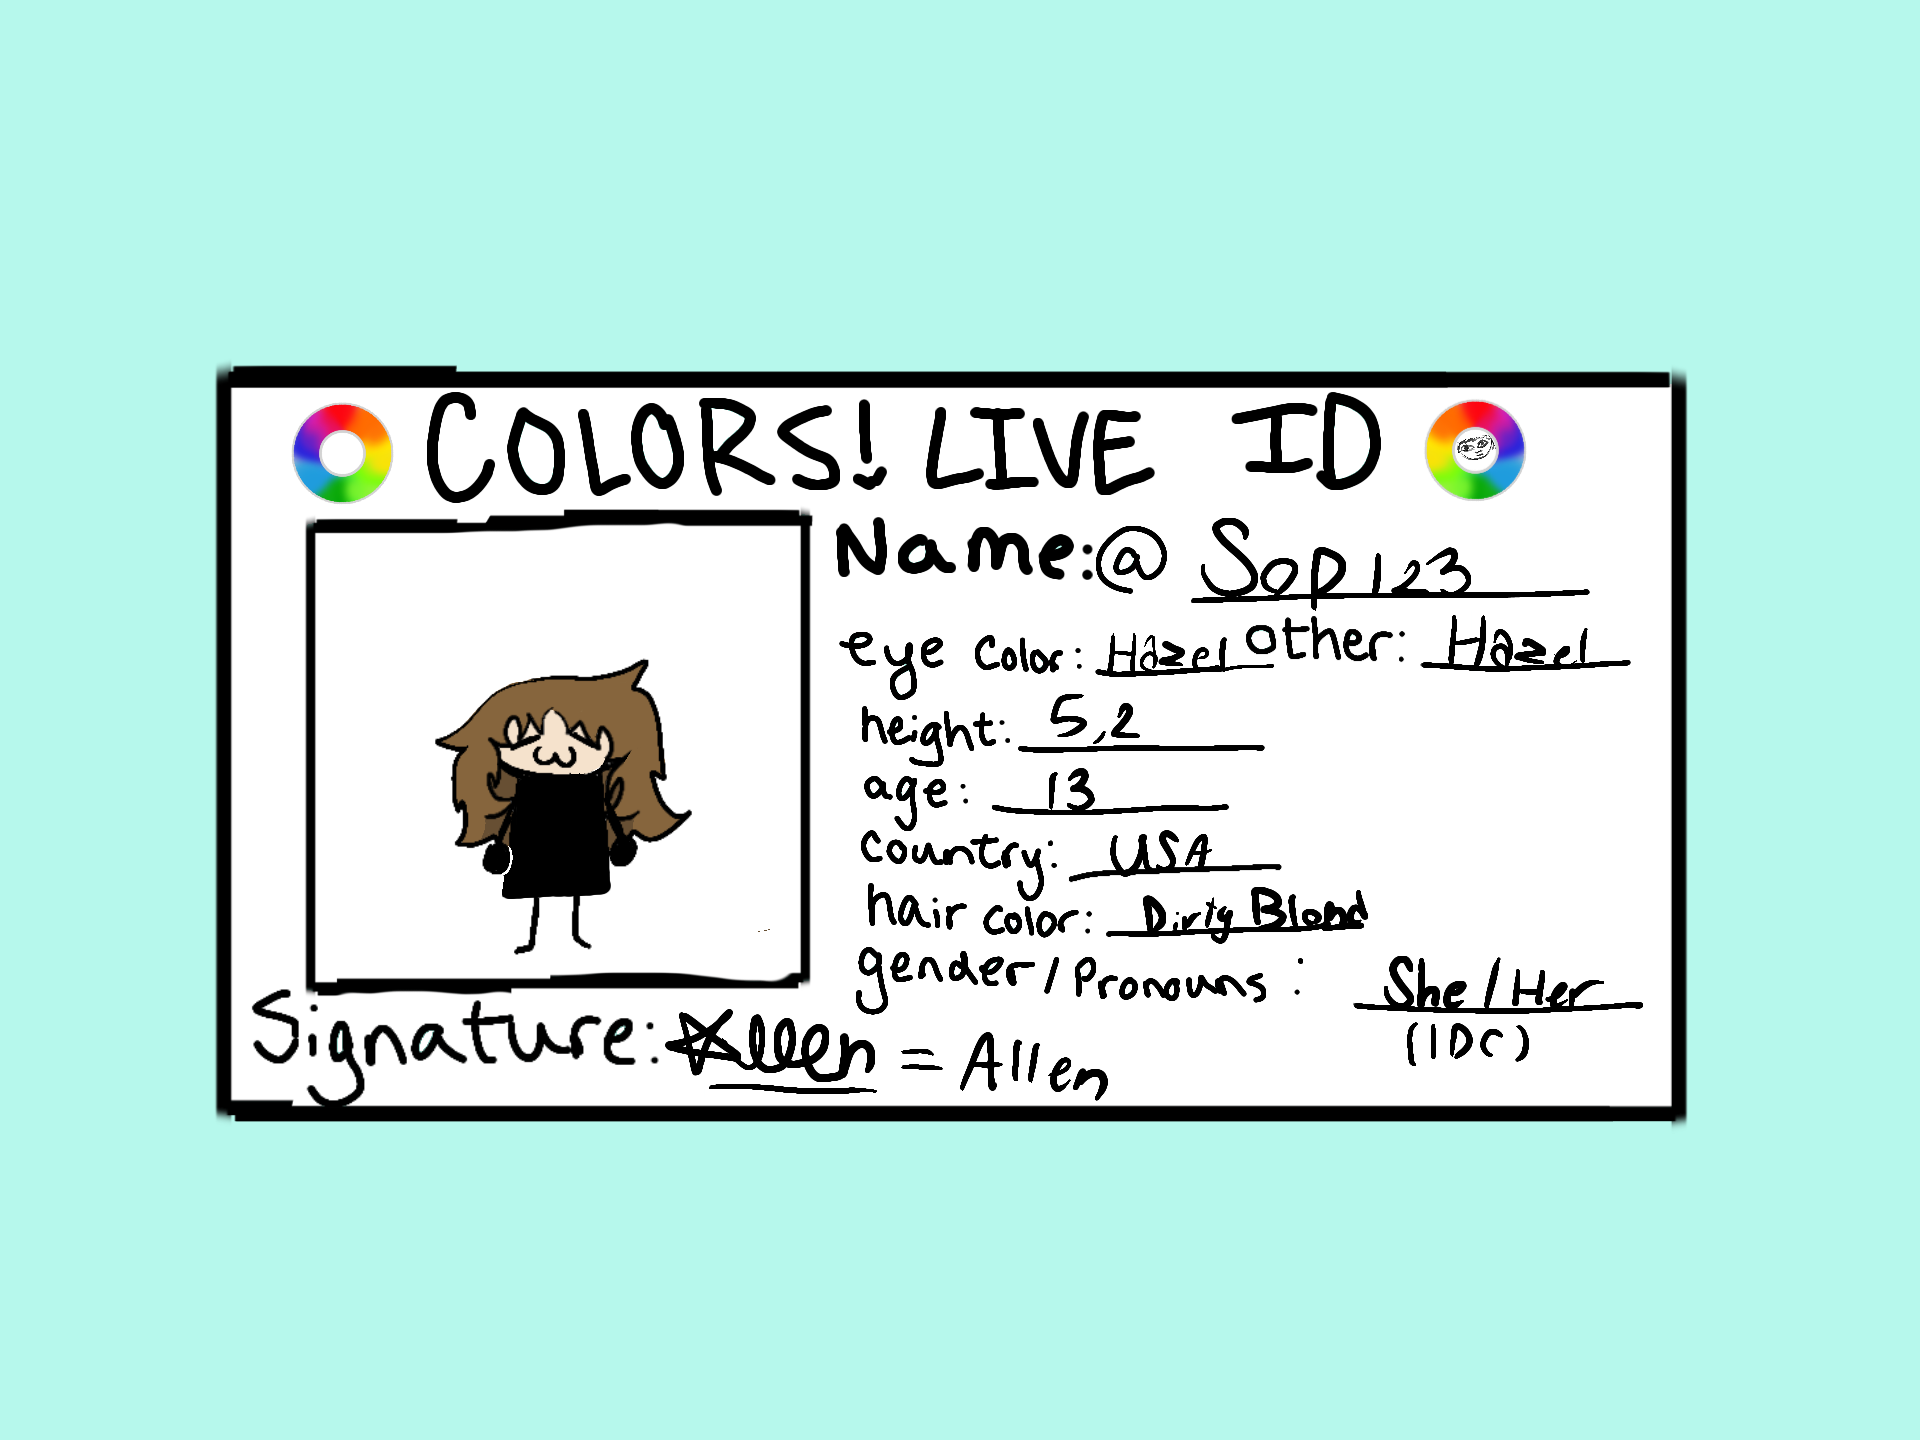 COLORS! LIVE ID
Name:@ Sop123
eye color: Hazel other: Hazel
height: 5,2
age: 13
country: USA
hair color: Dirty Blond
gender/Pronouns: She/Her
(IDC)
Signature: Allen = Allen